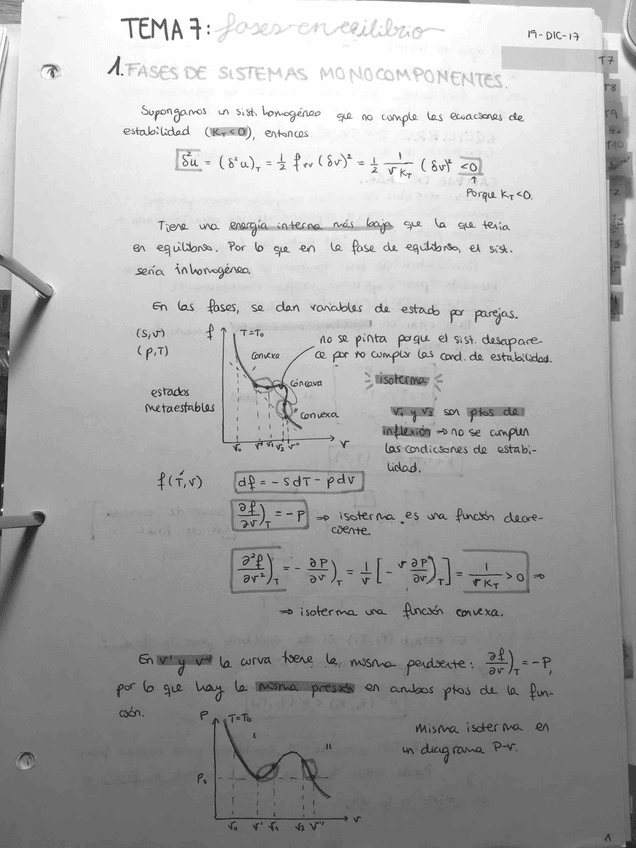 TEMA 7: fases en equilibrio
19-DIC-17
T7
T8
T9
T10
1. FASES DE SISTEMAS MONOCOMPONENTES.
Supongamos un sist. homogéneo que no cumple las ecuaciones de
estabilidad (K_T < 0), entonces
δ²u = (δ²u)_T = 1/2 f_vv (δv)² = 1/2 1/(v K_T) (δv)² < 0
↑
Porque K_T < 0.
Tiene una energía interna más baja que la que tería
en equilibrio. Por lo que en la fase de equilibrio, el sist.
sería inhomogéneo.
En las fases, se dan variables de estado por parejas.
(s, v)
(p, T)
f
T=T₀
no se pinta porque el sist. desapare-
ce por no cumplir las cond. de estabilidad.
convexa
cóncava
convexa
isoterma
estados
metaestables
v₁ y v₂ son ptos de
inflexión → no se cumplen
las condiciones de estabi-
lidad.
v₀ v' v₁ v₂ v'' v
f(T, v)
df = -s dT - p dv
∂f/∂v)_T = -P ⇒ isoterma es una función decre-
ciente.
∂²f/∂v²)_T = - ∂P/∂v)_T = 1/v [- v ∂P/∂v)_T] = 1/(v K_T) > 0 ⇒
⇒ isoterma una función convexa.
En v' y v'' la curva tiene la misma pendiente: ∂f/∂v)_T = -P,
por lo que hay la misma presión en ambos ptos de la fun-
ción.
P
T=T₀
'
''
Misma isoterma en
un diagrama P-v.
P₀
v₀ v' v₁ v₂ v'' v
1